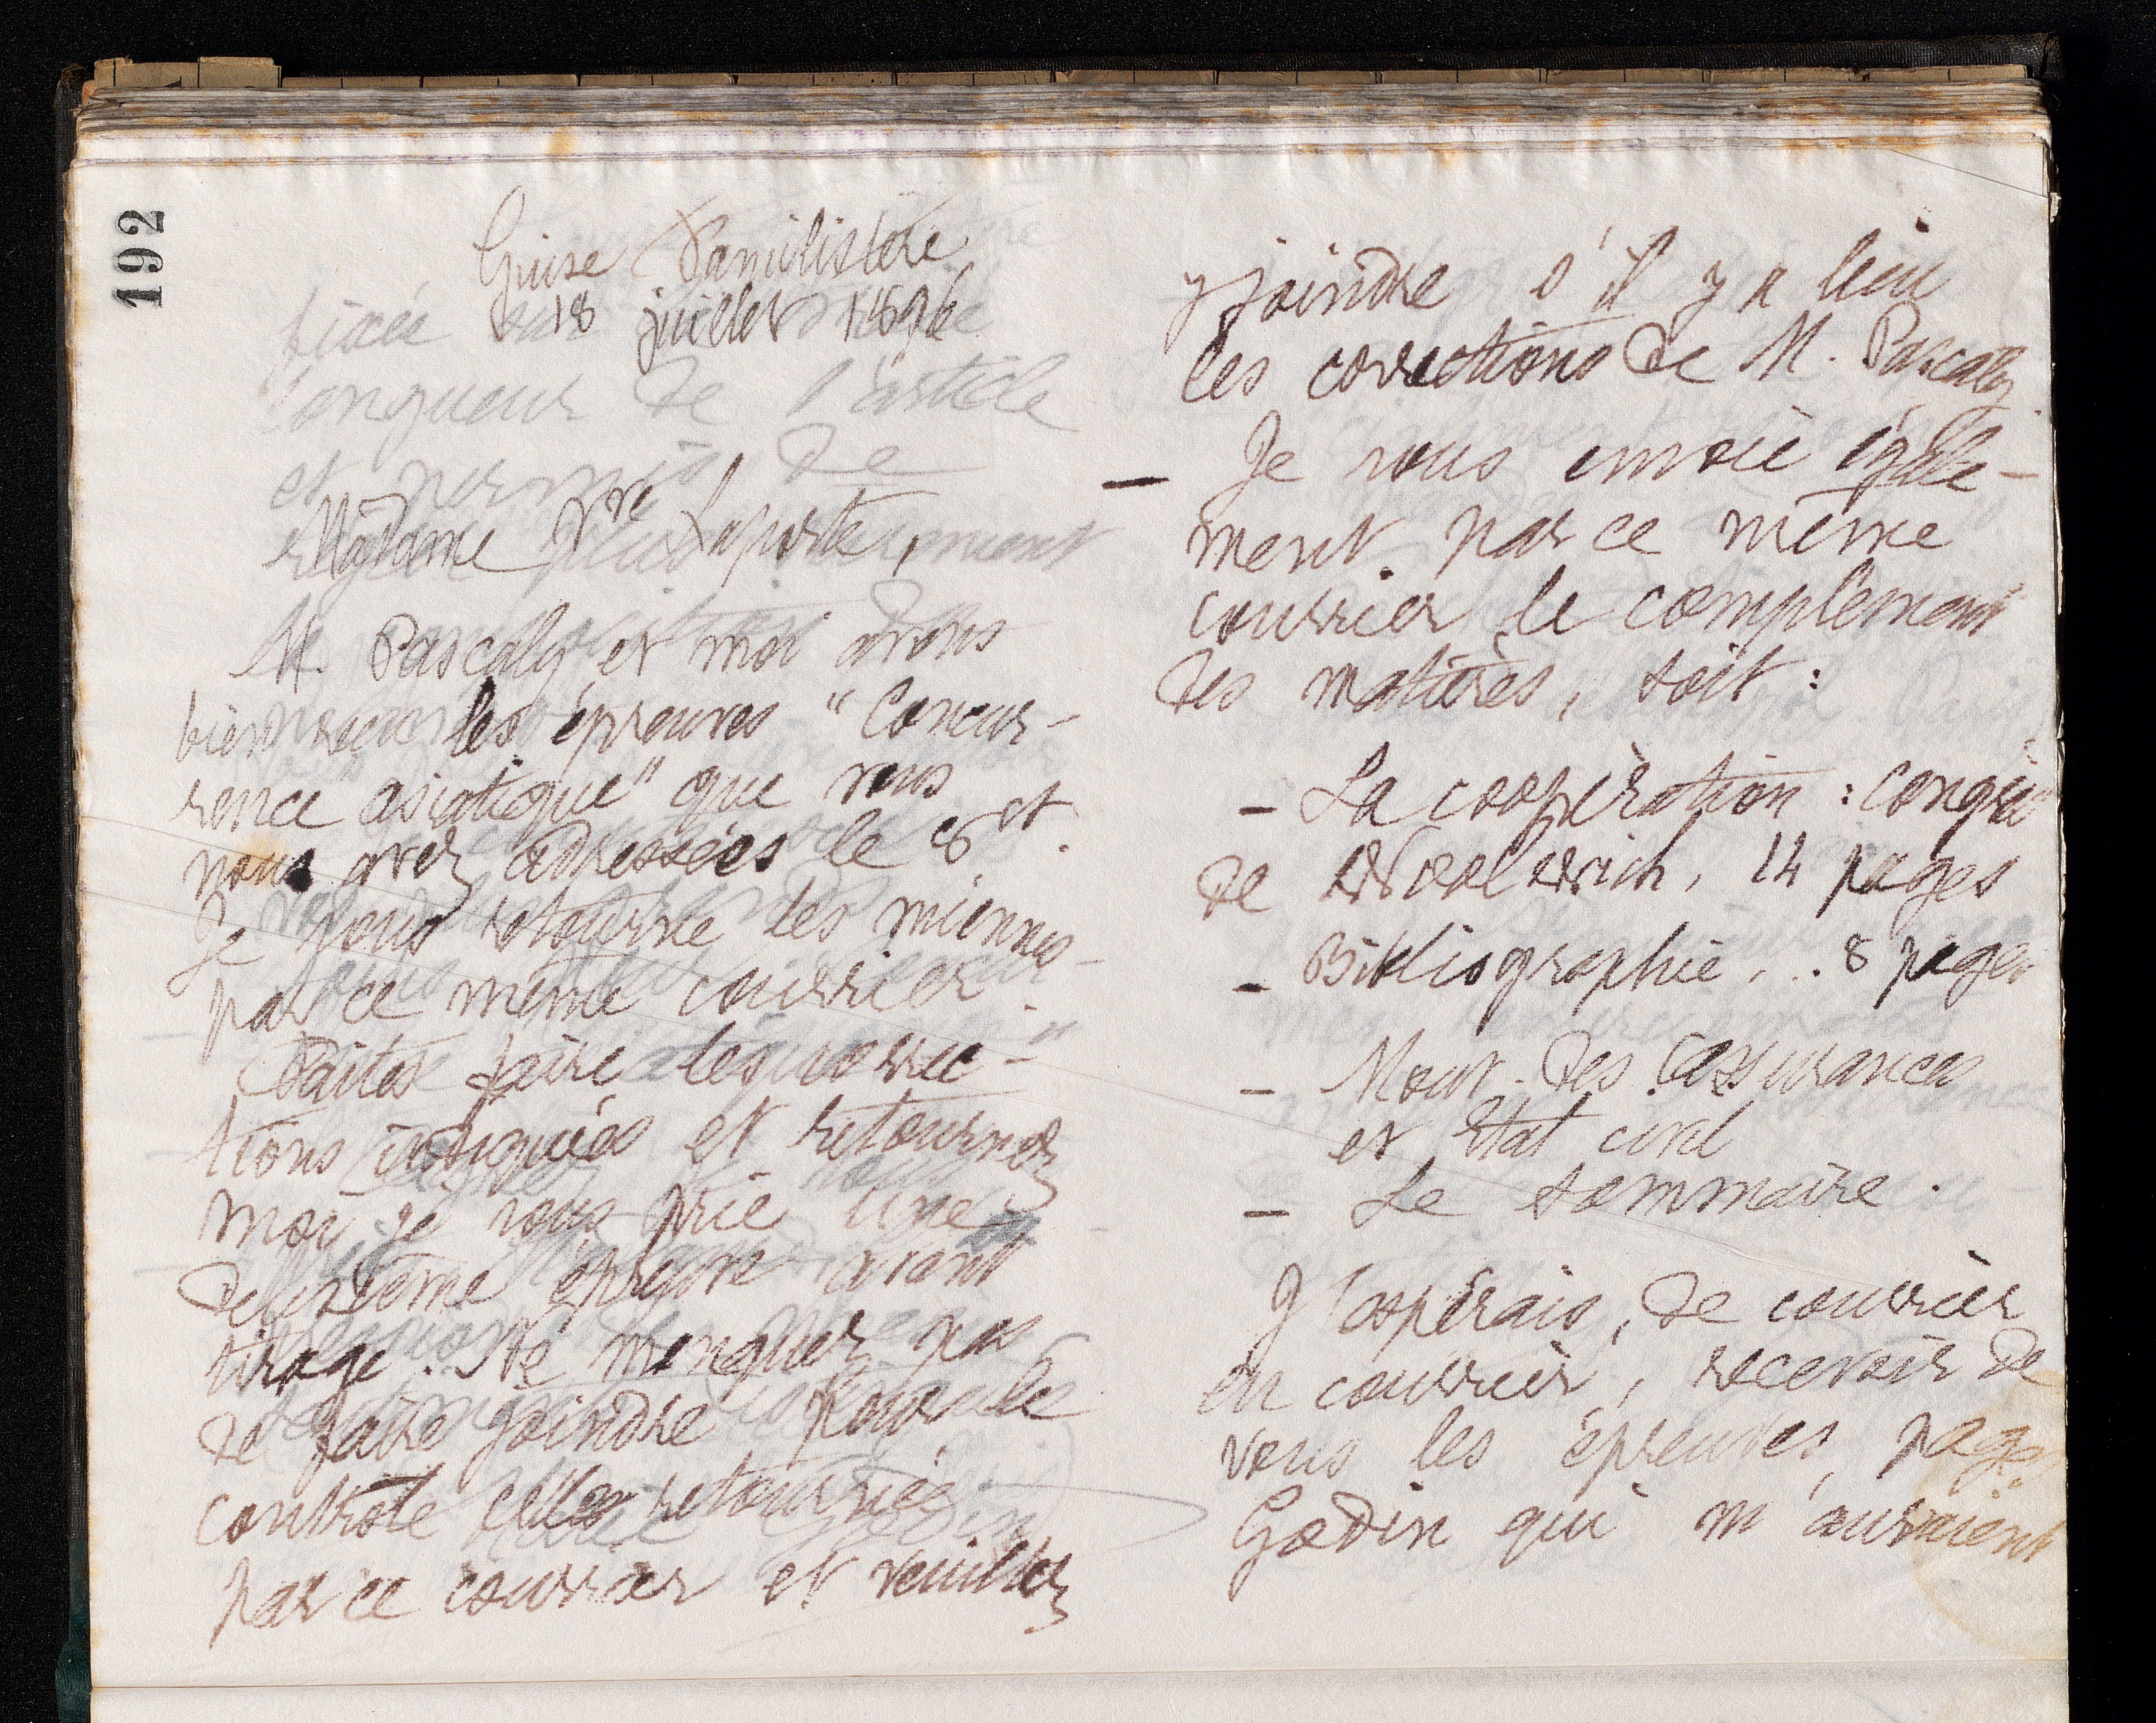 192
Guise Familistère
18 juillet 1896
Madame Vve Laporte,
M. Pascaly et moi avons
bien reçu les épreuves "Concur-
rence asiatique" que vous
nous avez adressées le 8 ct.
Je vous retourne les miennes
par ce même courrier.
Faites faire les correc-
tions indiquées et retournez
moi, je vous prie une
deuxième épreuve avant
tirage. Ne manquez pas
de faire joindre pour le
contrôle celles retournées
par ce courrier et veuillez
y joindre s'il y a lieu
les corrections de M. Pascaly.
— Je vous envoie égale-
ment par ce même
courrier le complément
des matières, soit :
- La coopération : congrès
de Woolwich, 14 pages
- Bibliographie, .. 8 pages
- Mouv. des assurances
et État civil
- Le sommaire.
J'espérais, de courrier
en courrier, recevoir de
vous les épreuves, pages
Godin qui m'auraient